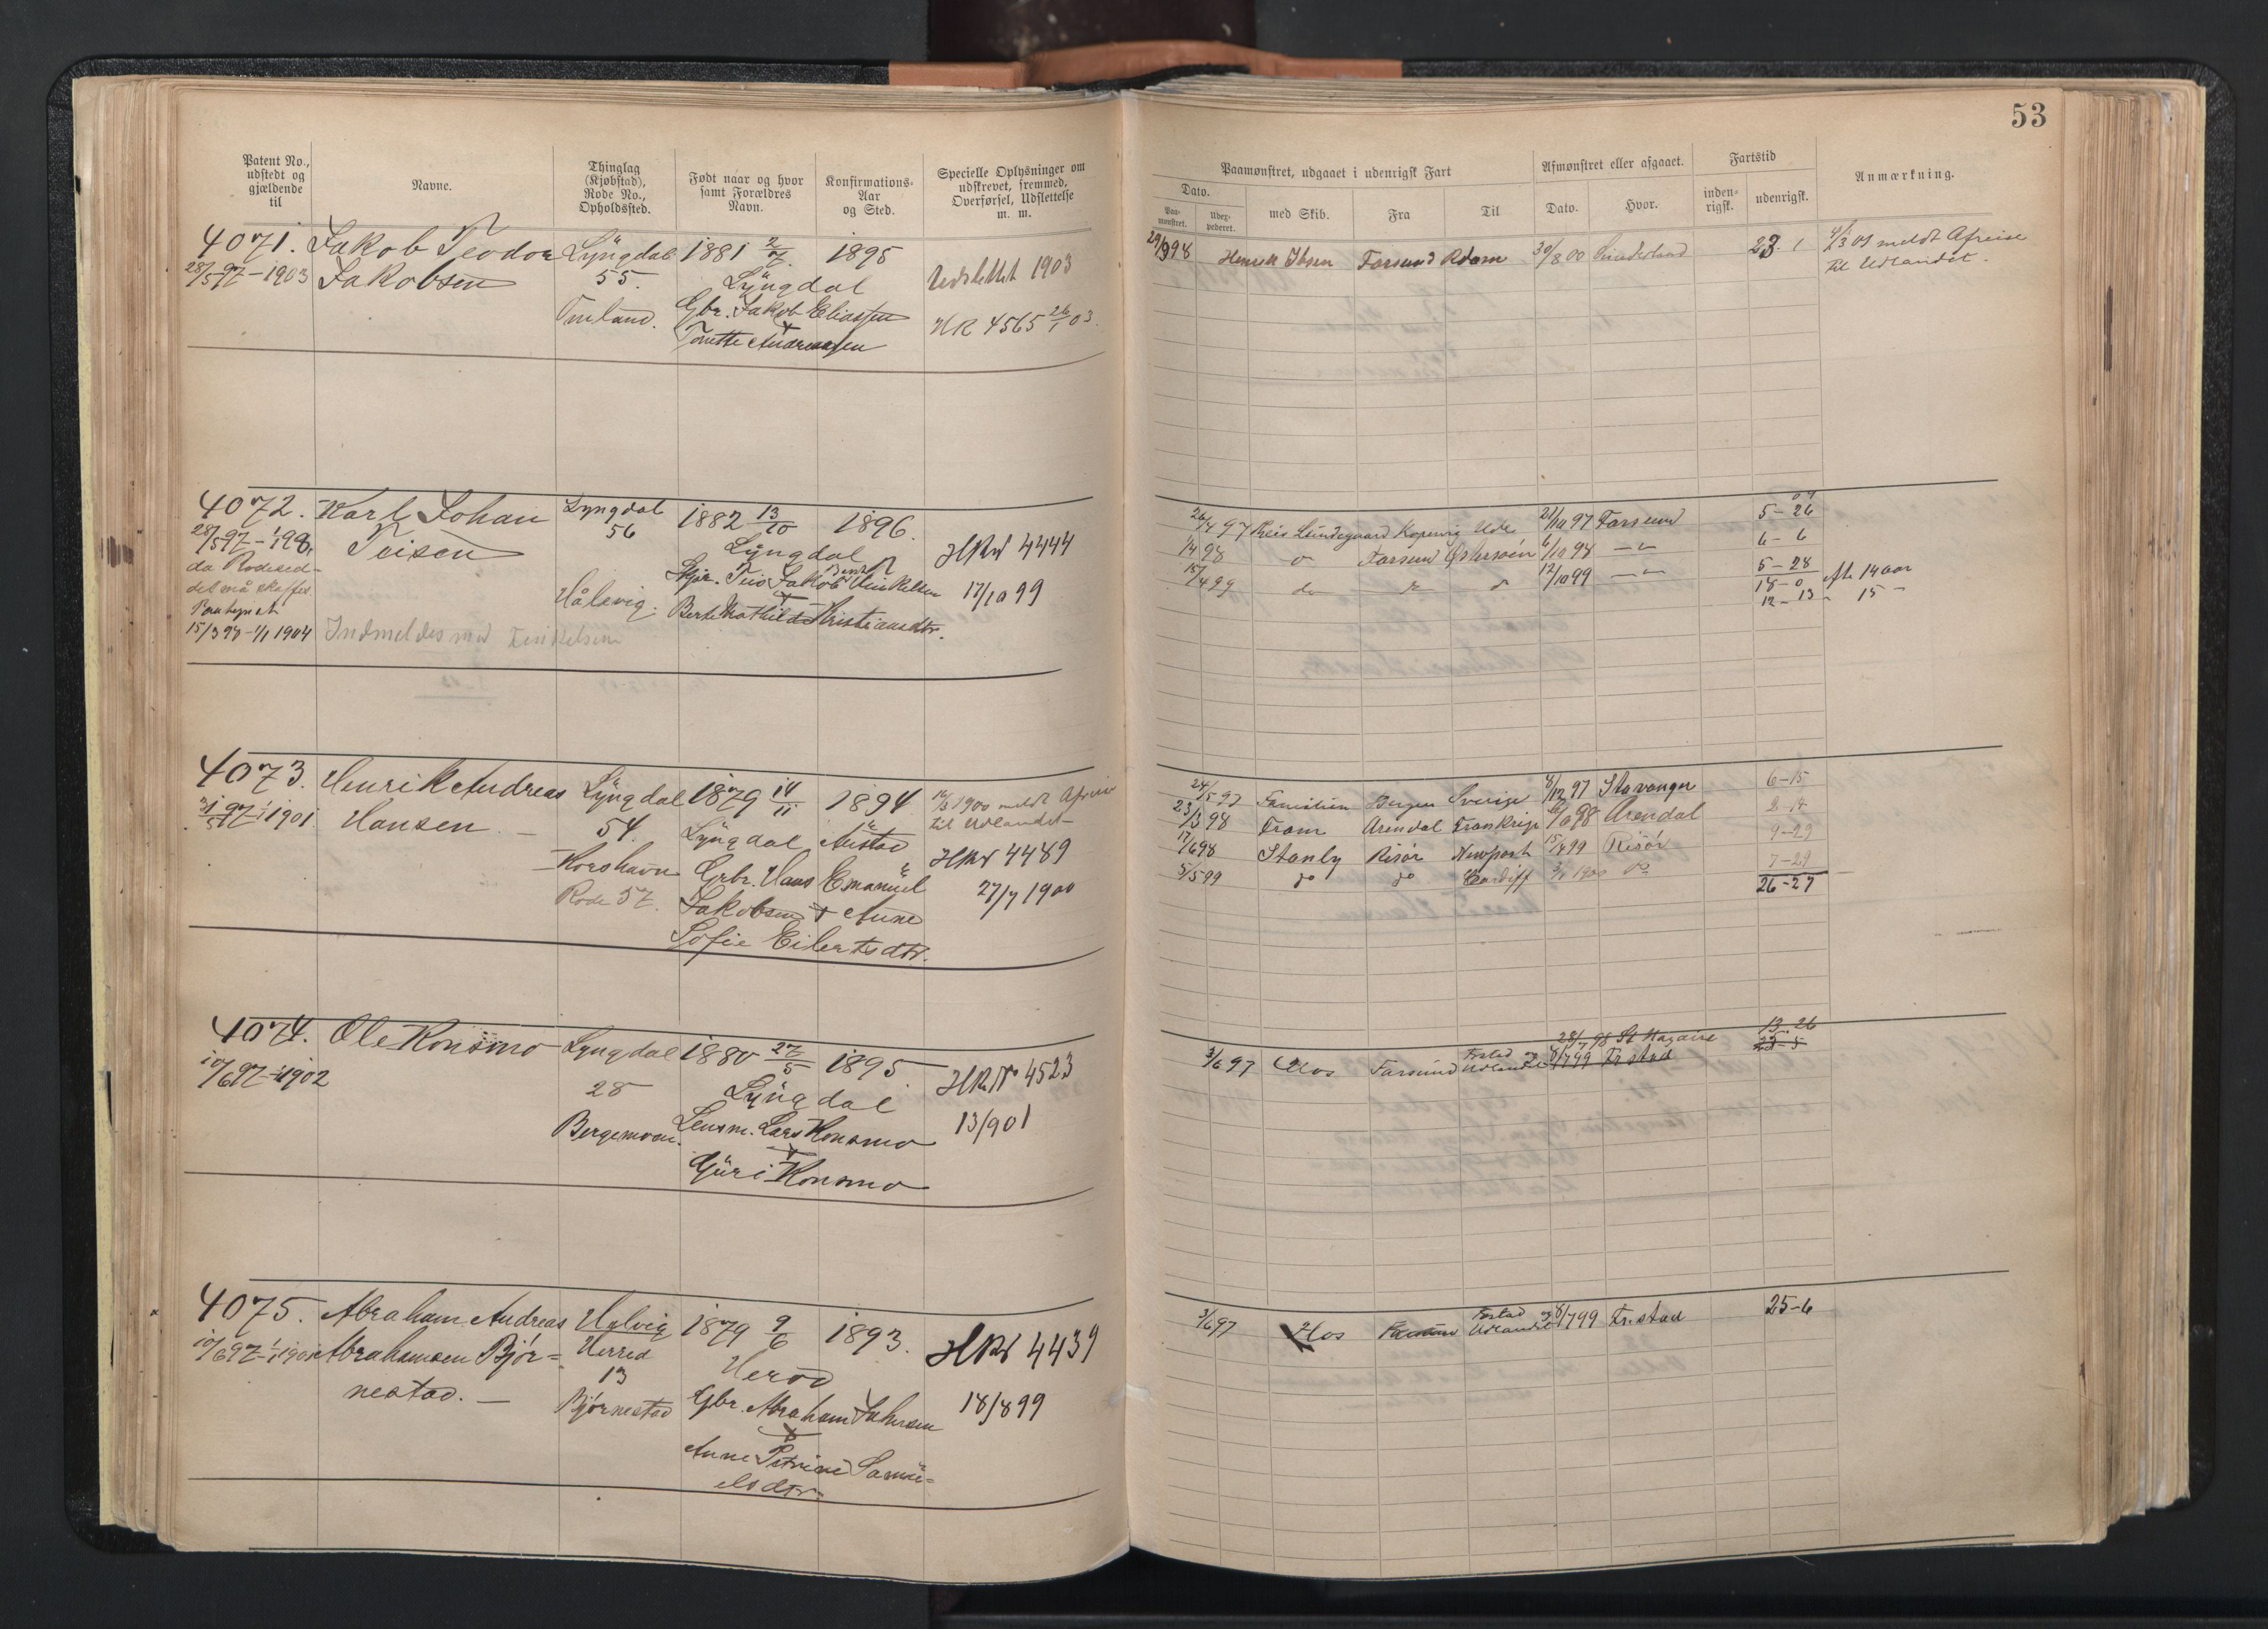 53
Patent No., udstedt og gjældende til
Navne.
Thinglag (Kjøbstad), Rode No., Opholdssted.
Født naar og hvor samt Forældres Navn.
Konfirmations-Aar og Sted.
Specielle Oplysninger om udskrevet, fremmed, Overførsel, Udslettelse m. m.
Paamønstret, udgaaet i udenrigsk Fart
Dato.
Paa-mønstret.
med Skib.
Fra
Til
Afmønstret eller afgaaet.
Dato.
Hvor.
Fartstid
inden-rigsk.
udenrigsk.
Anmærkning.
4071. Jakob Teodor Lyngdal 1881 2/7. 1895
28/5 97 - 1903 Jakobsen 55. Lyngdal Udslettet 1903
Gbr. Jakob Eliassen HR 4565 26/1 03.
+
Tonette Andreassen
29/9 98 Henrik Ibsen Farsund Rdam 30/8 00 23. 1 meldt Afreise
til Udlandet.
4072. Karl Johan Lyngdal 1882 13/10 1896.
28/5 97 - Teisen 56 Lyngdal HRN 4444
Jakob 17/10 99
Berte Mathilde Kristiansdtr.
15/3 98 - 1/1 1904 Indmeldes med
26/4 97 Kopervig Udl 21/10 97 Farsund 5-26
98 Farsund Østersøen 6/10 98 6-6
15/4 99 do 12/10 99 5-28
18-0 14 aar
12-13 15
4073. Henrik Andreas Lyngdal 1879 14/11 1894 1900 meldt Afreise
31/5 97 - 1/1 1901 Hansen 54. Lyngdal Austad til Udlandet
Korshavn Gbr. Hans Emanuel HRN 4489
Rode 57. Jakobsen + Anne 27/7 1900
Sofie Eilertsdtr.
24/5 97 Familien Bergen Sverige 8/12 97 Stavanger 6-15
23/3 98 Fram Arendal Frankrige 98 Arendal 2-14
17/6 98 Stanly Risør Newport 15/4 99 Risør 9-29
5/5 99 do do Cardiff 1900 do 7-29
26-27
4074. Ole Konsmo Lyngdal 1880 27/5 1895 HRN 4523
10/6 97 - 1/1 1902 28 Lyngdal
Bergemoen. Lensm. Lars Konsmo 13/9 01
+
Guri Konsmo
28/7 98 St Nazaire 13-26
3/6 97 Farsund Frstad Udlandet 8/7 99 Fr.stad
4075. Abraham Andreas 1879 9/6 1893. HRN 4439
10/6 97 Abrahamsen Bjør= Herred Herod
nestad. 13
Bjørnestad Gbr. Abraham 18/8 99
+
Anne Petrine Samu=
elsdtr.
3/6 97 Frstad Udlandet 8/7 99 Fr.stad 25-6